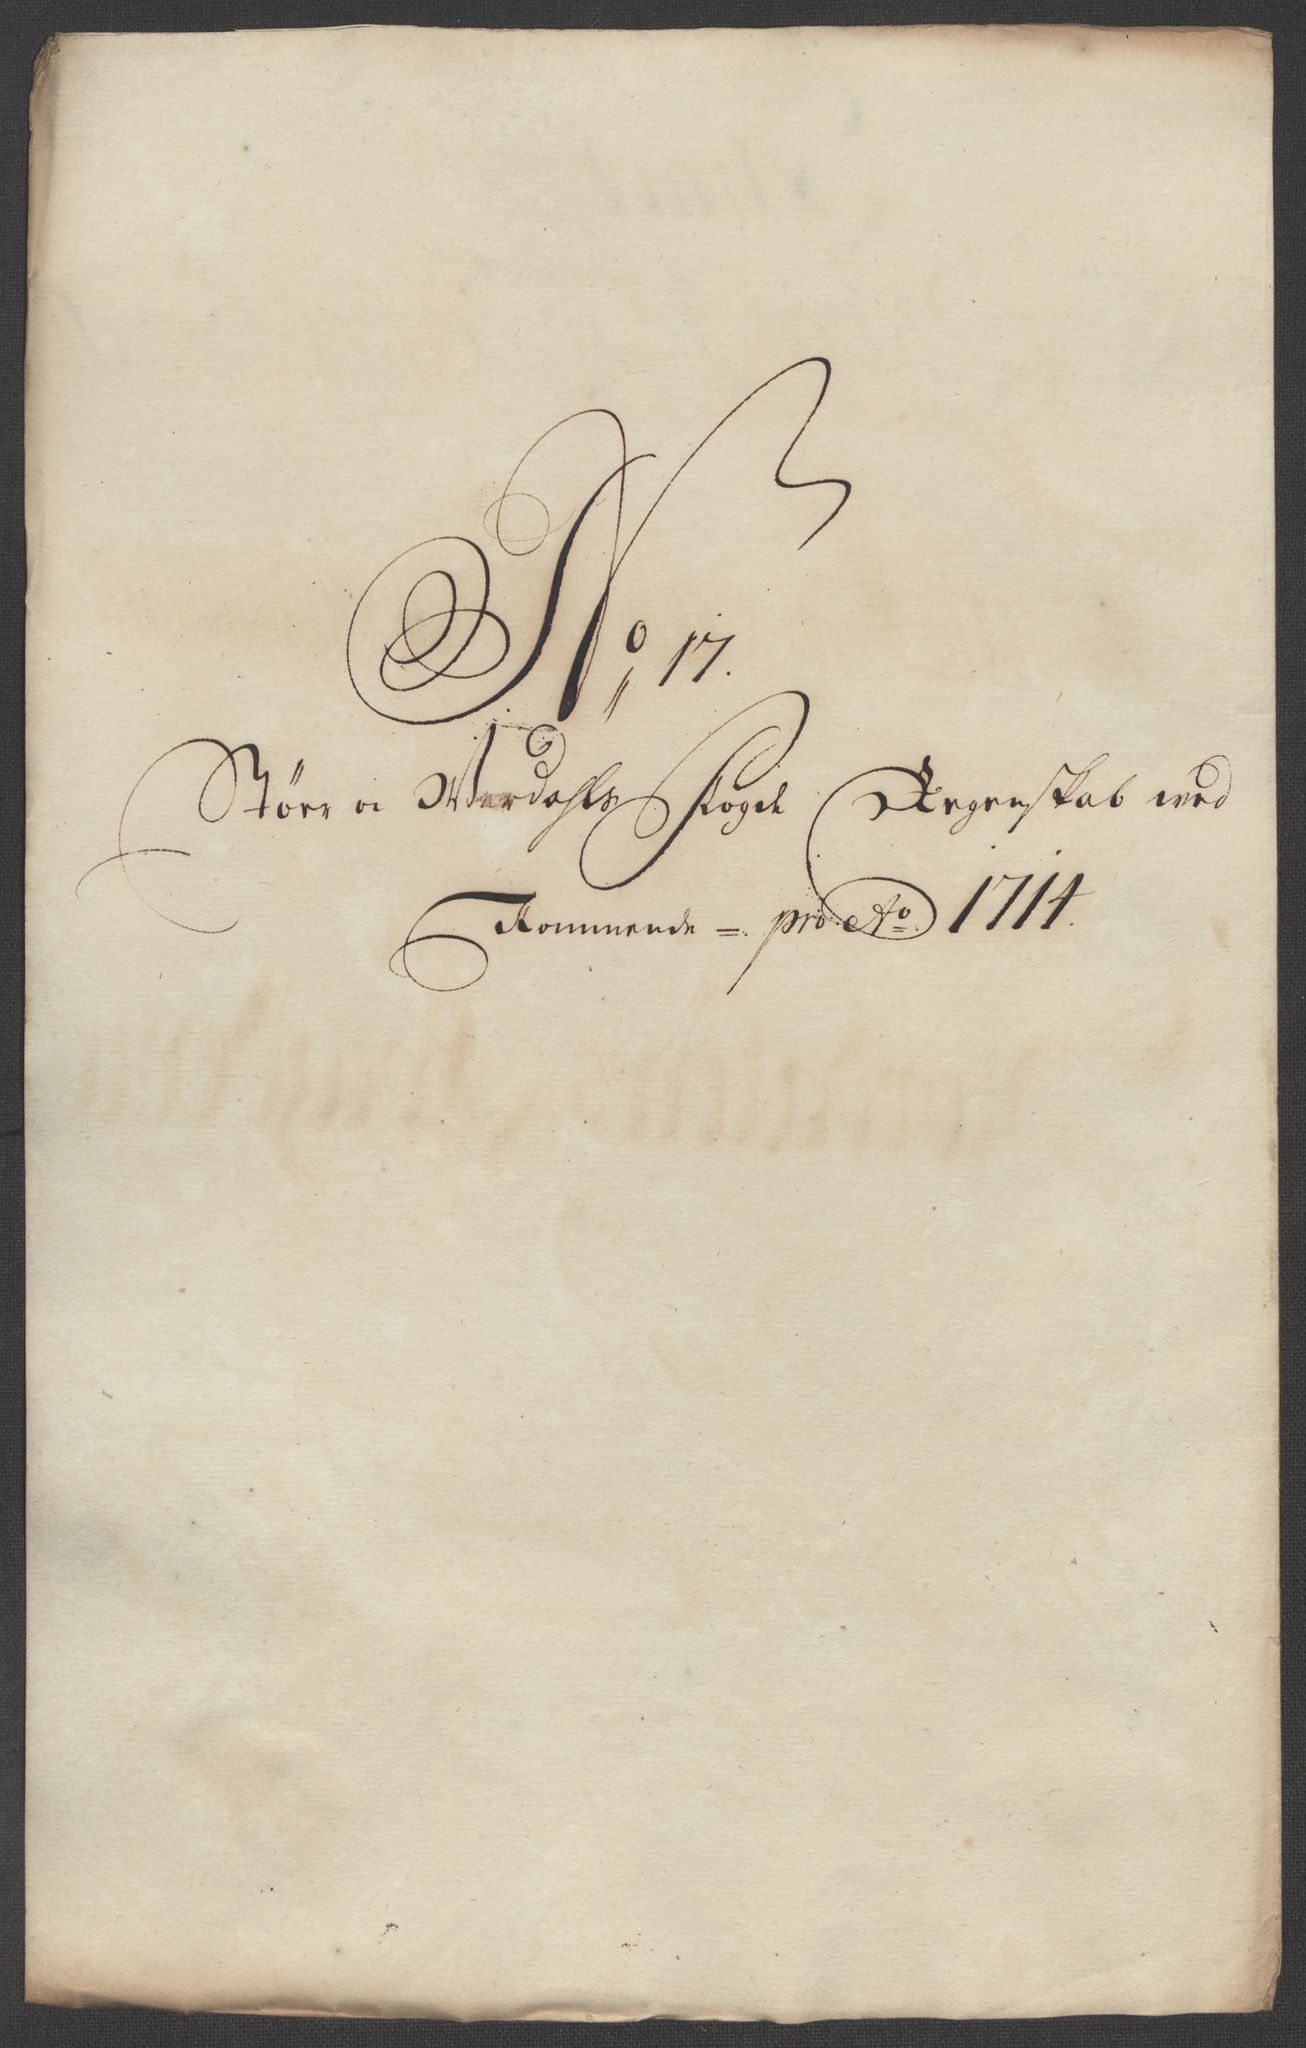 No 17.
Stöer o Werdahls Fogde Regenskab ved
Kommende =. pro Ao 1714.